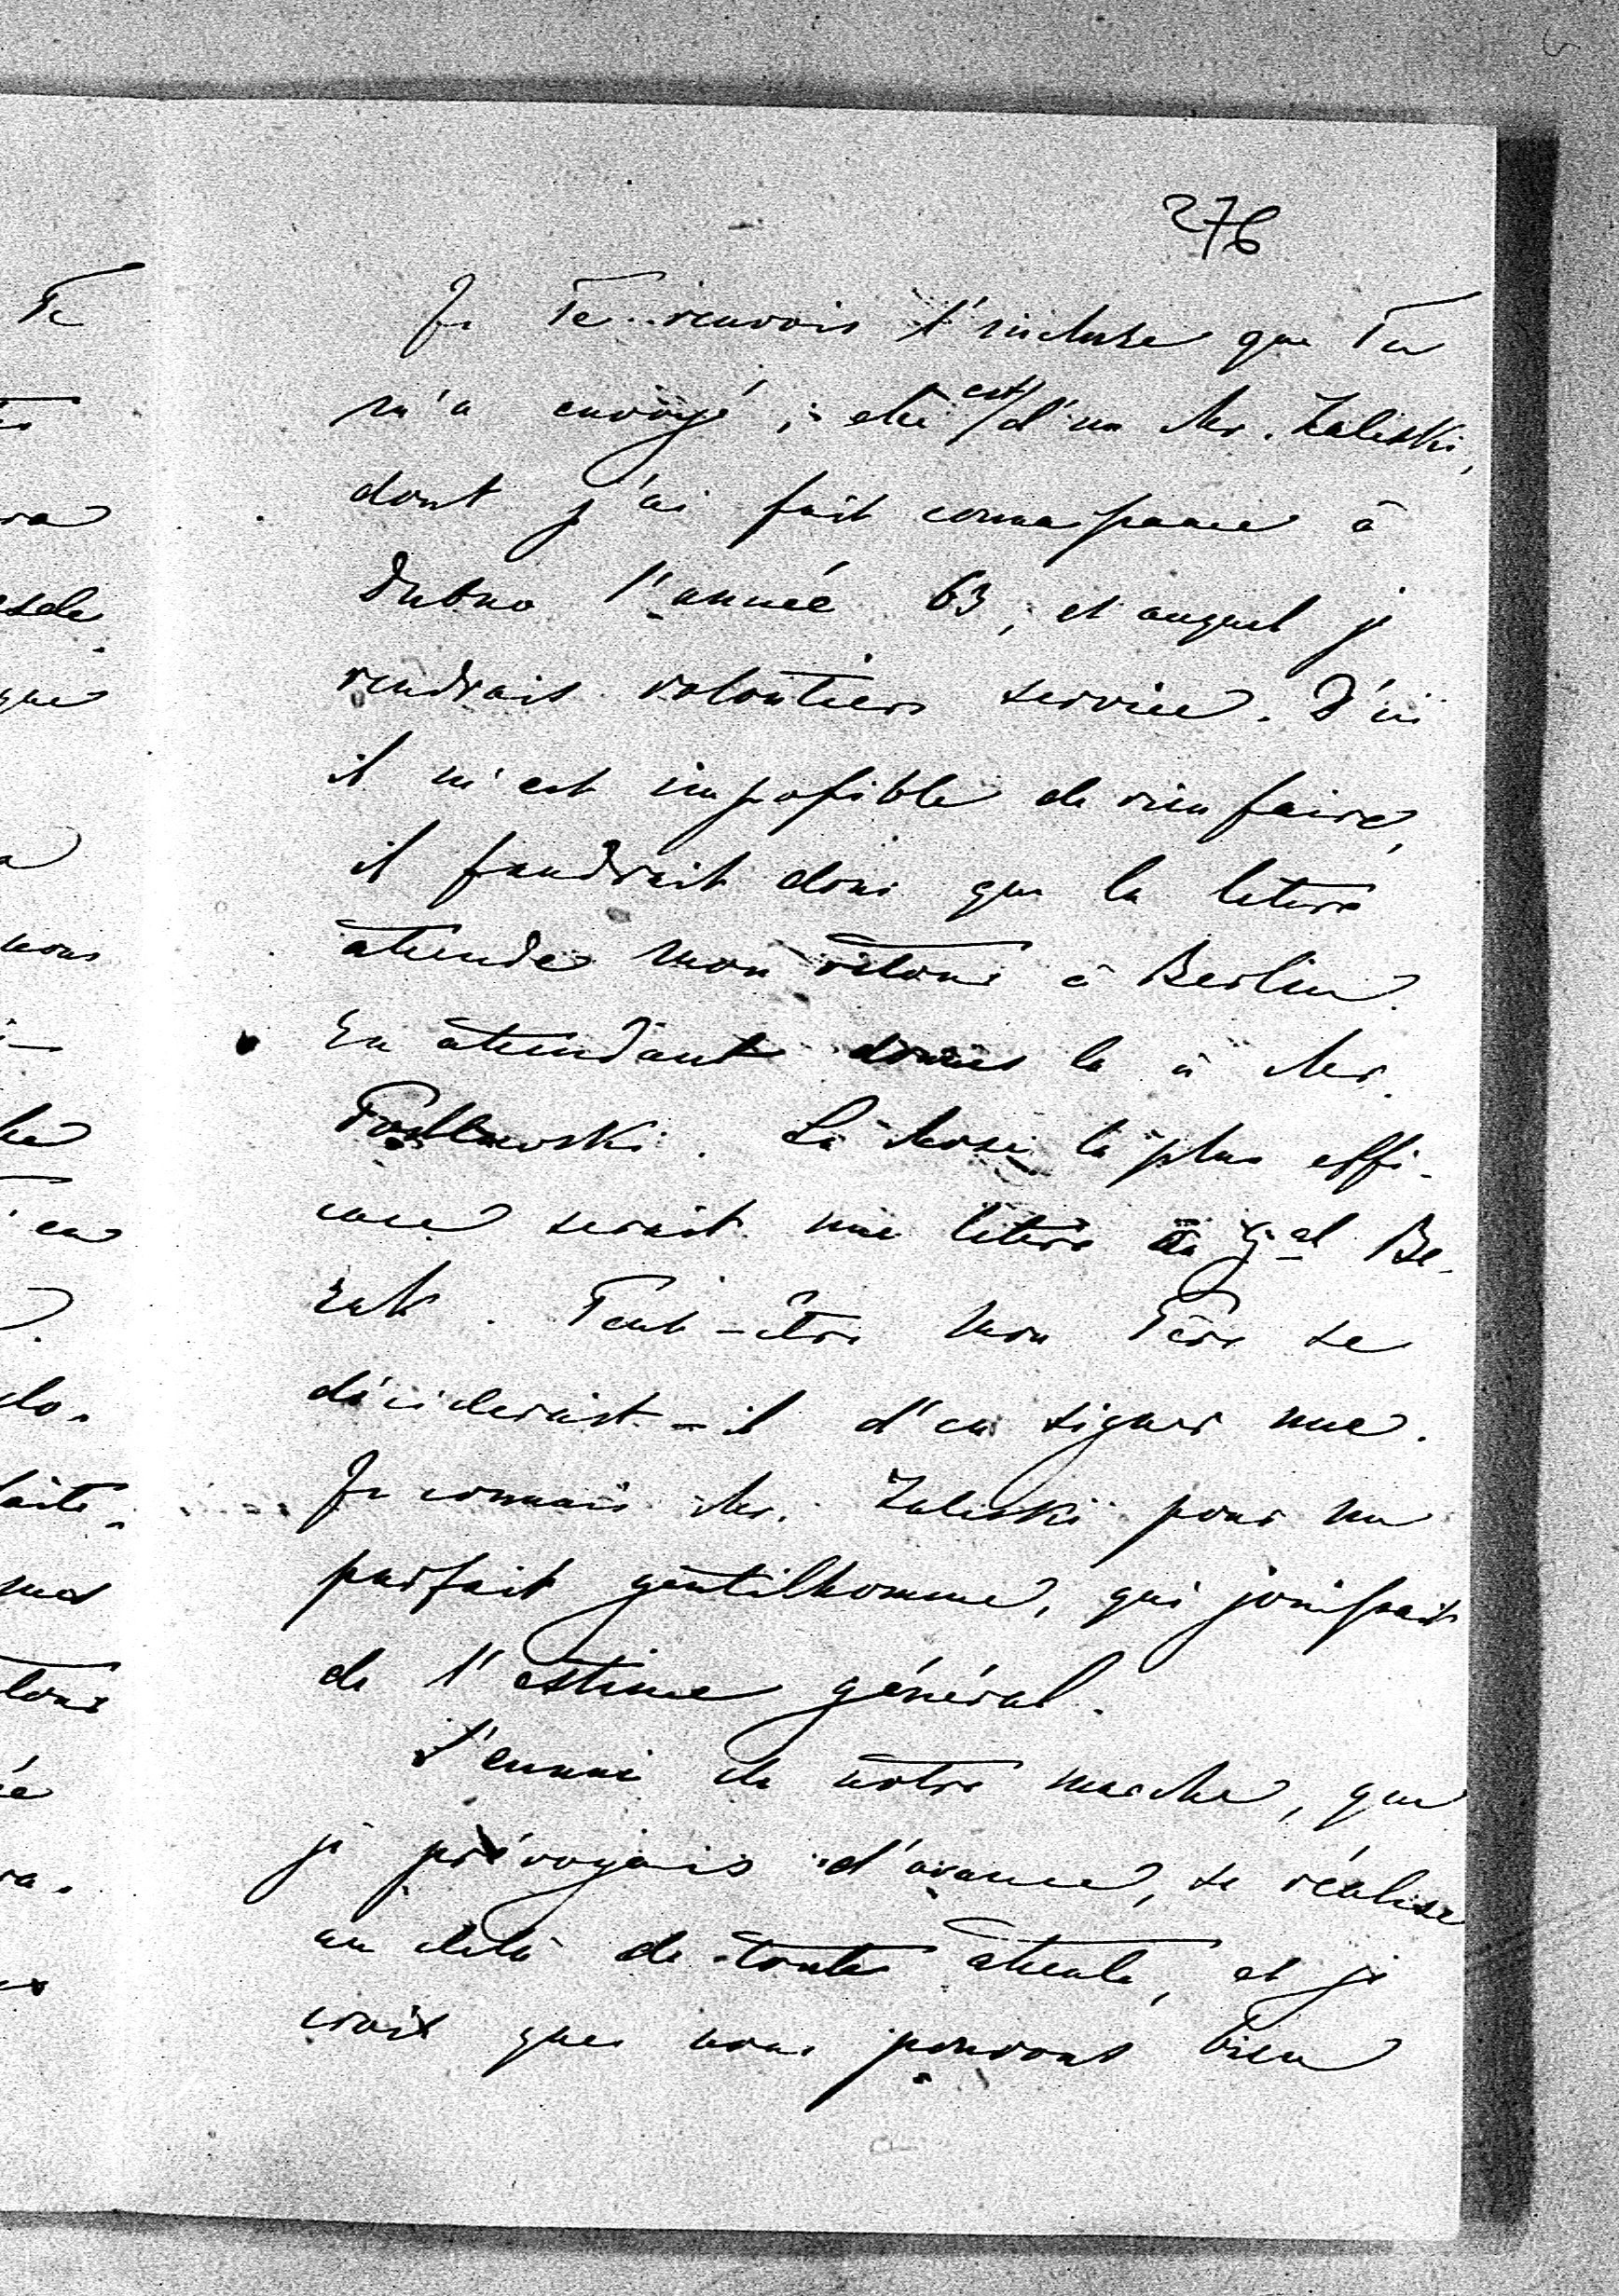 276
Je Te renvois l'incluse que Tu
m'a envoyé; elle est d'un Mr. Zaliski,
dont j'ai fait connaissance à
Dubno l'année 63, et auquel je
rendrais volontiers service. D'ici
il m'est impossible de rien faire,
il faudrait donc que la letire
atende mon retour à Berlin.
En atendant donnes la à Mr.
La chose la plus effi-
cace serait une letire au Gal Be-
zak. Peut-être mon Père se
déciderait-il d'en signer une.
Je connais Mr. Zaliski pour un
parfait gentilhomme, qui jouissait
de l'estime général.
L'ennui de notre marche, que
je prévoyais d'avance, se réalise
au delà de toute atente, et je
crois que nous pouvons bien